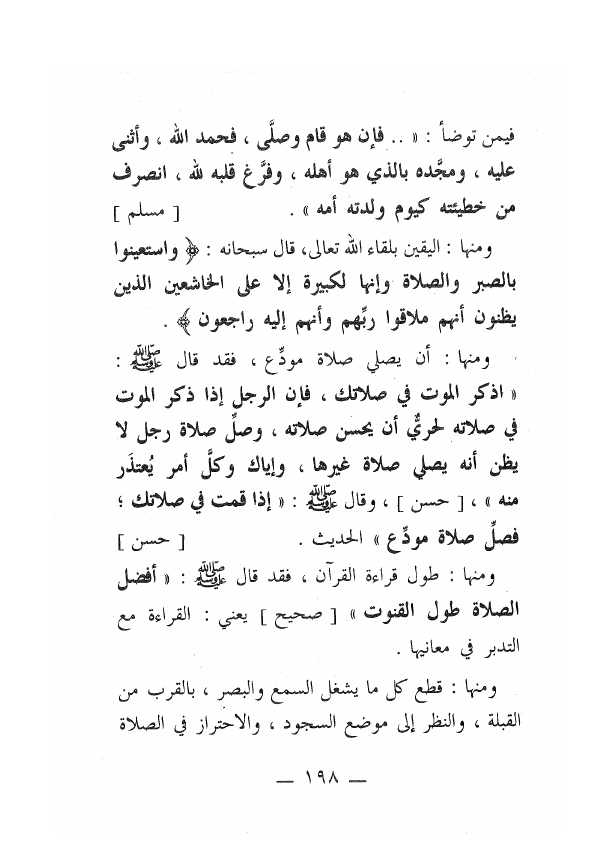 فيمن توضأ : « .. فإن هو قام وصلَّى ، فحمد الله ، وأثنى
عليه ، ومجَّده بالذي هو أهله ، وفرَّغ قلبه لله ، انصرف
من خطيئته كيوم ولدته أمه » . [ مسلم ]
ومنها : اليقين بلقاء الله تعالى، قال سبحانه : ﴿ واستعينوا
بالصبر والصلاة وإنها لكبيرة إلا على الخاشعين الذين
يظنون أنهم ملاقوا ربِّهم وأنهم إليه راجعون ﴾ .
ومنها : أن يصلي صلاة مودِّع ، فقد قال ﷺ :
« اذكر الموت في صلاتك ، فإن الرجل إذا ذكر الموت
في صلاته لحريٌّ أن يحسن صلاته ، وصلِّ صلاة رجل لا
يظن أنه يصلي صلاة غيرها ، وإياك وكلَّ أمر يُعتذَر
منه » ، [ حسن ] ، وقال ﷺ : « إذا قمت في صلاتك ؛
فصلِّ صلاة مودِّع » الحديث . [ حسن ]
ومنها : طول قراءة القرآن ، فقد قال ﷺ : « أفضل
الصلاة طول القنوت » [ صحيح ] يعني : القراءة مع
التدبر في معانيها .
ومنها : قطع كل ما يشغل السمع والبصر ، بالقرب من
القبلة ، والنظر إلى موضع السجود ، والاحتراز في الصلاة
— ١٩٨ —